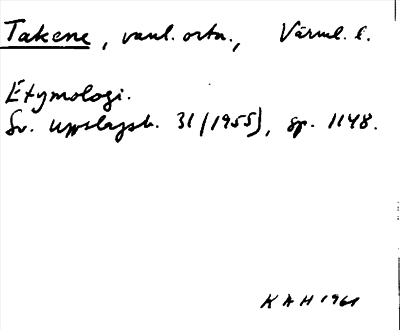 Takene, vanl. ortn., Värml. l.
Etymologi.
Sv. uppslagsb. 31 (1955), sp. 1148.
KAH 1961